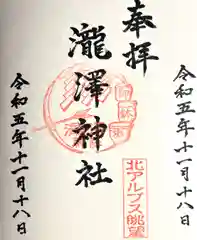 令和五年十一月十八日
奉拝
北アルプス眺望
瀧澤神社
令和五年十一月十八日